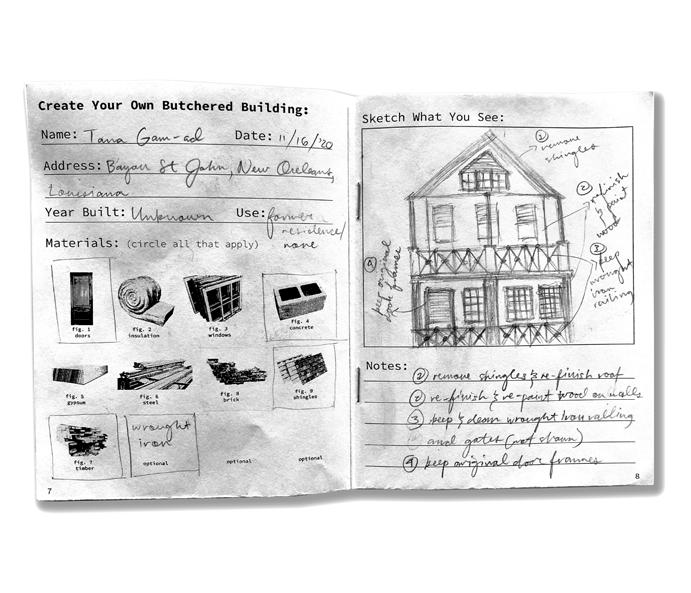 Create Your Own Butchered Building:
Name: Tana Gam-ad Date: 11/16/'20
Address: Bayou St John, New Orleans,
Louisiana
Year Built: Unknown Use: former
residence/
none
Materials: (circle all that apply)
fig. 1
doors
fig. 2
insulation
fig. 3
windows
fig. 4
concrete
fig. 5
gypsum
fig. 6
steel
fig. 8
brick
fig. 9
shingles
fig. 7
timber
wrought
iron
optional
optional
optional
7
Sketch What You See:
2 remove
shingles
2 refinish
& paint
wood
3 keep
wrought
iron
railing
4 keep original
door frames
Notes:
2 remove shingles & re-finish roof
2 re-finish & re-paint wood on walls
3 keep & clean wrought iron railing
and gates (not shown)
4 keep original door frames
8